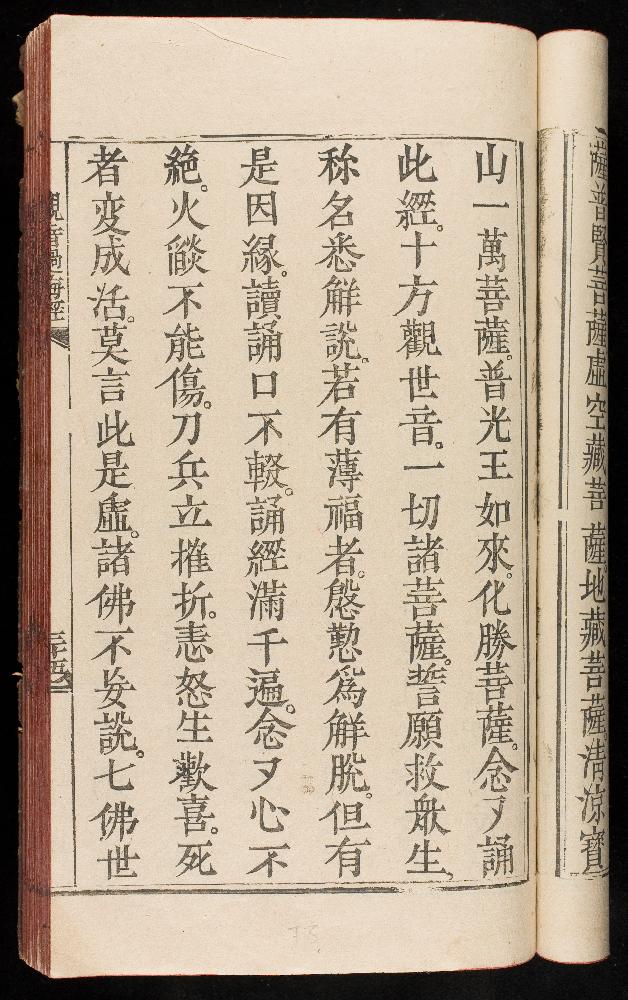 薩普賢菩薩虛空藏菩薩。地藏菩薩。清涼寶
山一萬菩薩。普光王如來。化勝菩薩。念又誦
此經。十方觀世音。一切諸菩薩。誓願救眾生,
称名悉觧說。若有薄福者。慇懃為觧脫。但有
是因緣。讀誦口不輟。誦經滿千遍。念又心不
絶。火燄不能傷。刀兵立摧折。恚怒生歡喜。死
者变成活。莫言此是虛。諸佛不妄說。七佛世
觀音過海經